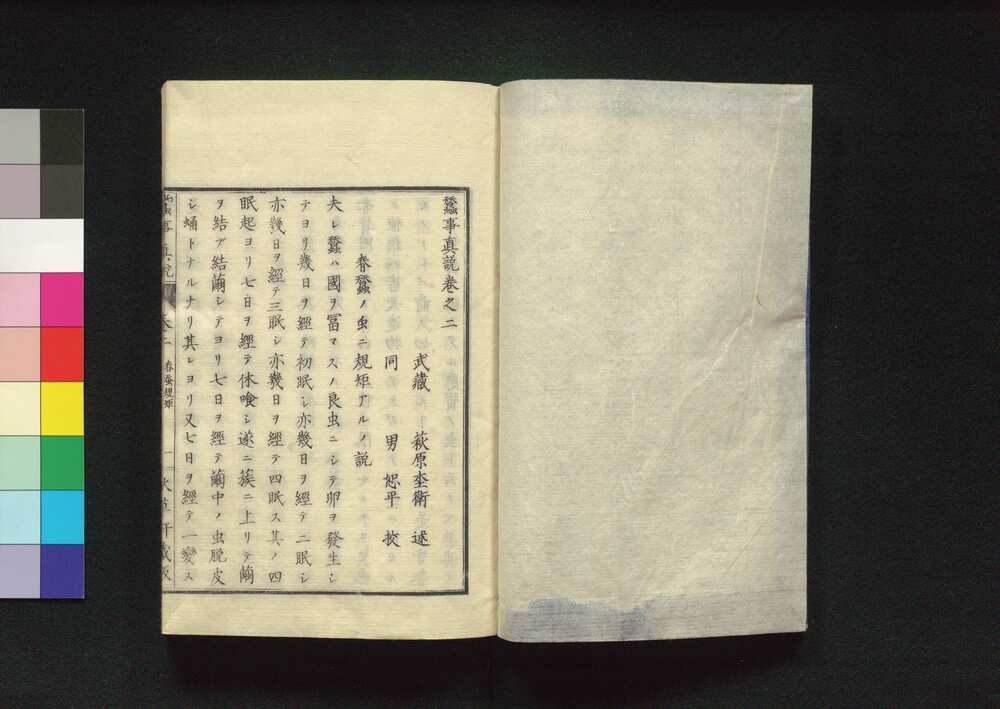 蠶事真説卷之二
武藏 萩原
同 男 平 挍
春蠶ノ虫ニ規矩アルノ説
夫レ蠶ハ國ヲ冨マスノ良虫ニシテ卵ヲ發生シ
テヨリ幾日ヲ經テ初眠シ亦幾日ヲ經テ二眠シ
亦幾日ヲ經テ三眠シ亦幾日ヲ經テ四眠ス其ノ四
眠起ヨリ七日ヲ經テ休喰シ遂ニ簇ニ上リテ繭
ヲ結ブ結繭シテヨリ七日ヲ經テ繭中ノ虫脱皮
シ蛹トナルナリ其レヨリ又七日ヲ經テ一變ス
蠶事真説 卷二 春蚕規矩 一